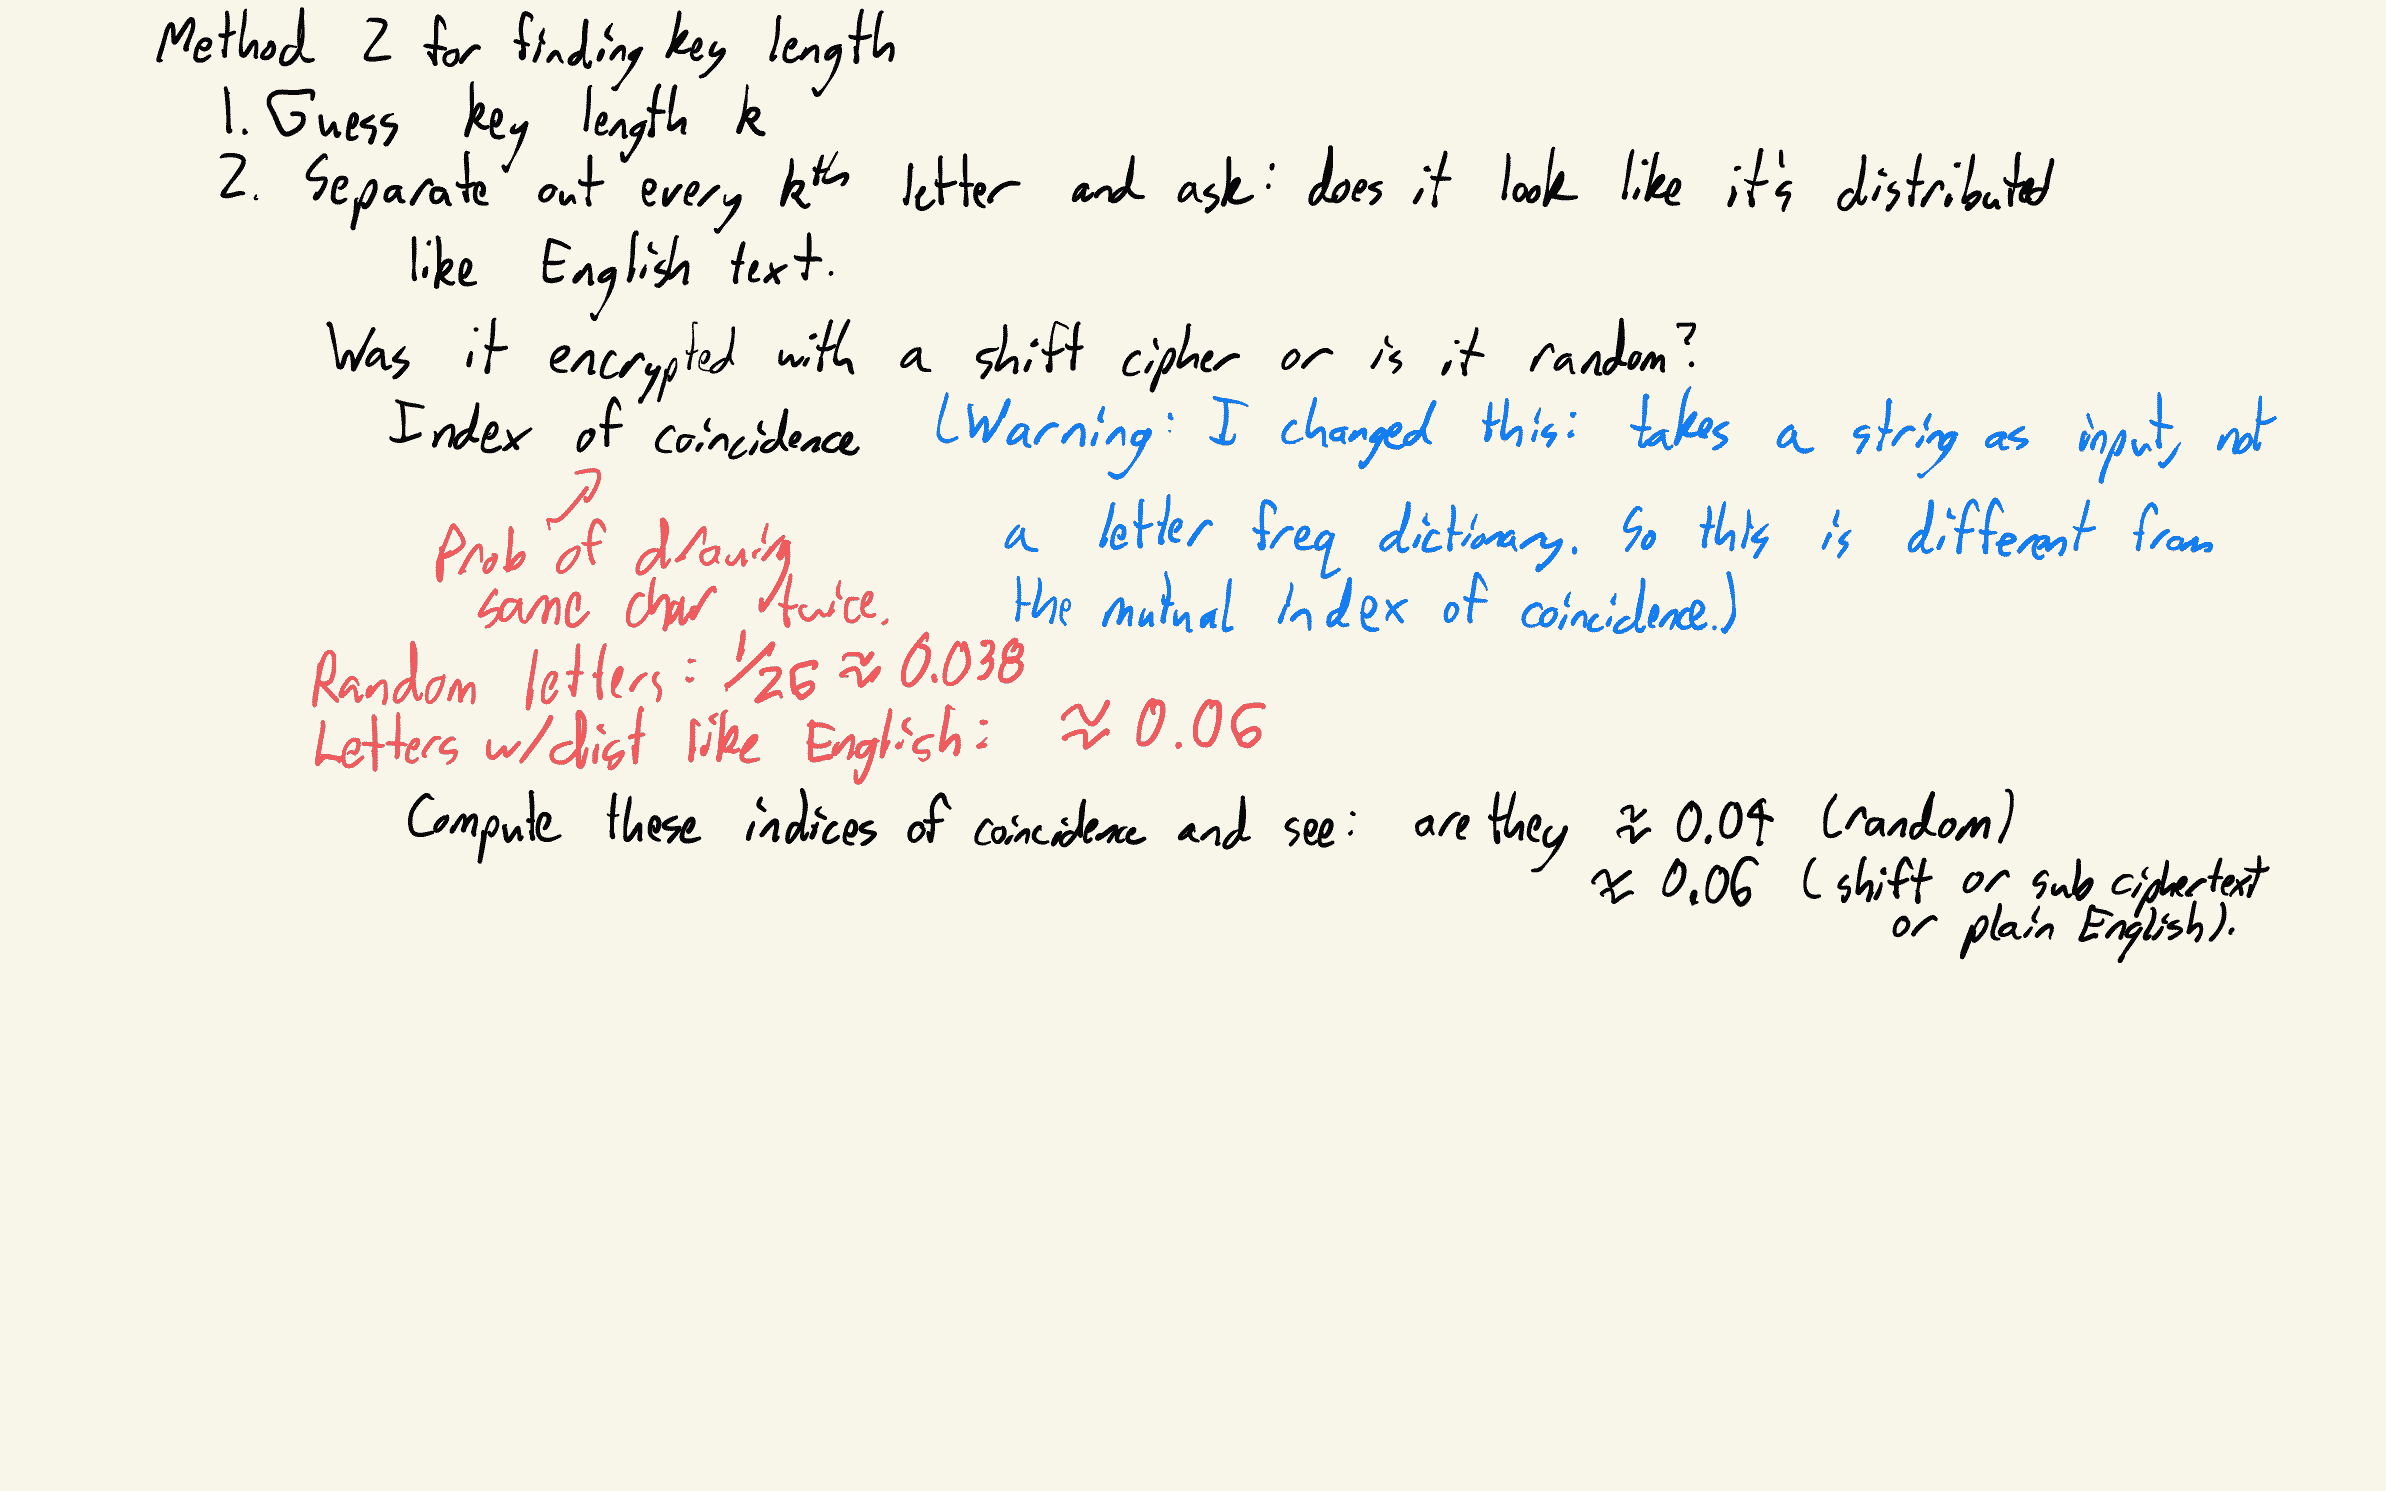 Method 2 for finding key length
1. Guess key length k
2. Separate out every kth letter and ask: does it look like it's distributed
like English text.
Was it encrypted with a shift cipher or is it random?
Index of coincidence (Warning: I changed this: takes a string as input, not
a letter freq dictionary. So this is different from
the mutual index of coincidence.)
Prob of drawing
same char twice.
Random letters: 1/26 ≈ 0.038
Letters w/dist like English: ≈ 0.06
Compute these indices of coincidence and see: are they ≈ 0.04 (random)
≈ 0.06 (shift or sub ciphertext
or plain English).